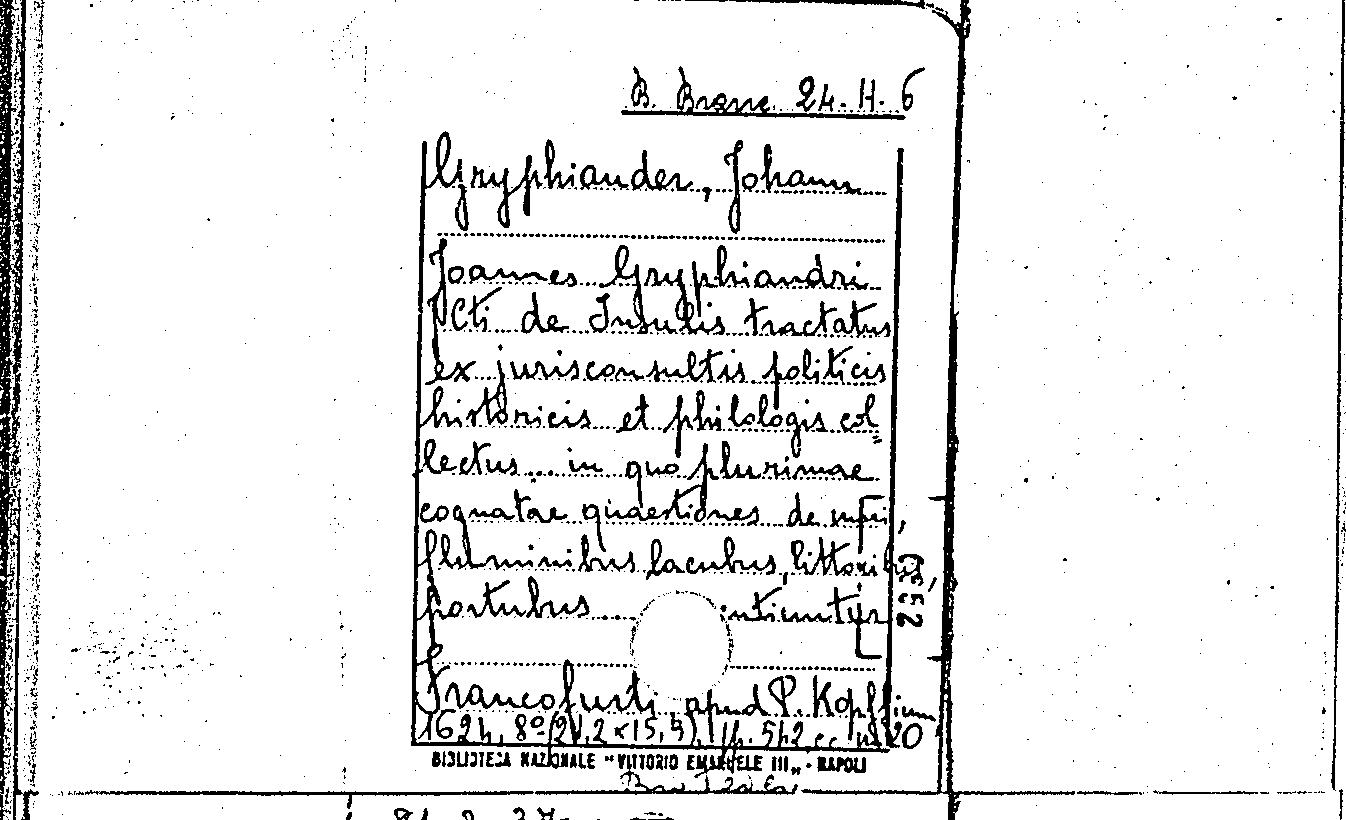 B. Branc. 24. H. 6
Gryphiander, Johann
Joannes Gryphiandri
JCti de Insulis tractatus
ex jurisconsultis politicis
historicis et philologis col=
lectus... in quo plurimae
cognatae quaestiones de
fluminibus lacubus, littoribus,
portubus ...
Francofurti, apud P. Kopffium
1624, 8º (21,2 x 15,5), pp. 542, cc. 20
BIBLIOTECA NAZIONALE "VITTORIO EMANUELE III„ - NAPOLI